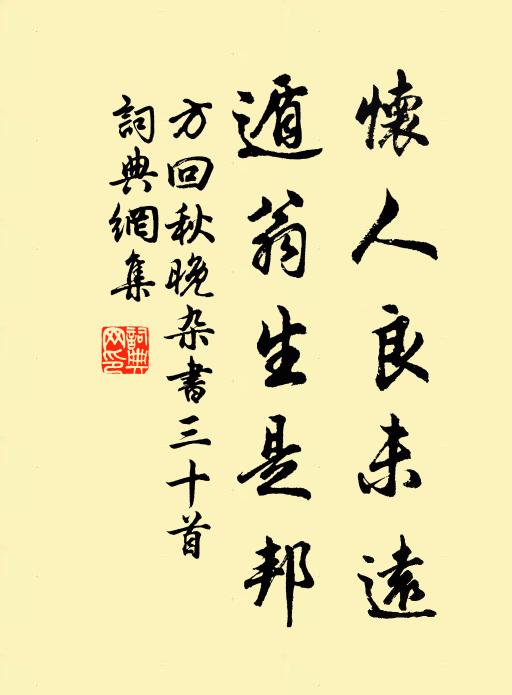 懷人良未遠
遁翁生是邦
方回秋晚杂書三十首
詞典網集
詞典网印